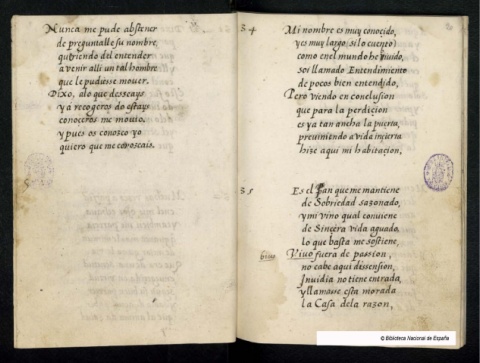 Nunca me pude abstener
de preguntalle su nombre,
queriendo del entender
a venir alli un tal hombre
que le pudiesse mouer.
Dixo, alo que desseays
y a recogeros do estays
conoceros me mouio,
y pues os conosco yo
quiero que me conoscais.
34
Mi nombre es muy conocido,
y es muy largo, si lo cuento
como en el mundo he
soi llamado Entendimiento
de pocos bien entendido,
Pero viendo en conclusion
que para la perdicion
es ya tan ancha la puerta,
preuiniendo a vida incierta
hize aqui mi habitacion,
35
Es el Pan que me mantiene
de Sobriedad sazonado,
y mi vino qual conuiene
de Sincera vida aguado,
lo que basta me sostiene,
biuo
Viuo fuera de passion,
no cabe aqui dissension,
Inuidia no tiene entrada,
y llamase esta morada
la Casa dela razon,
© Biblioteca Nacional de España